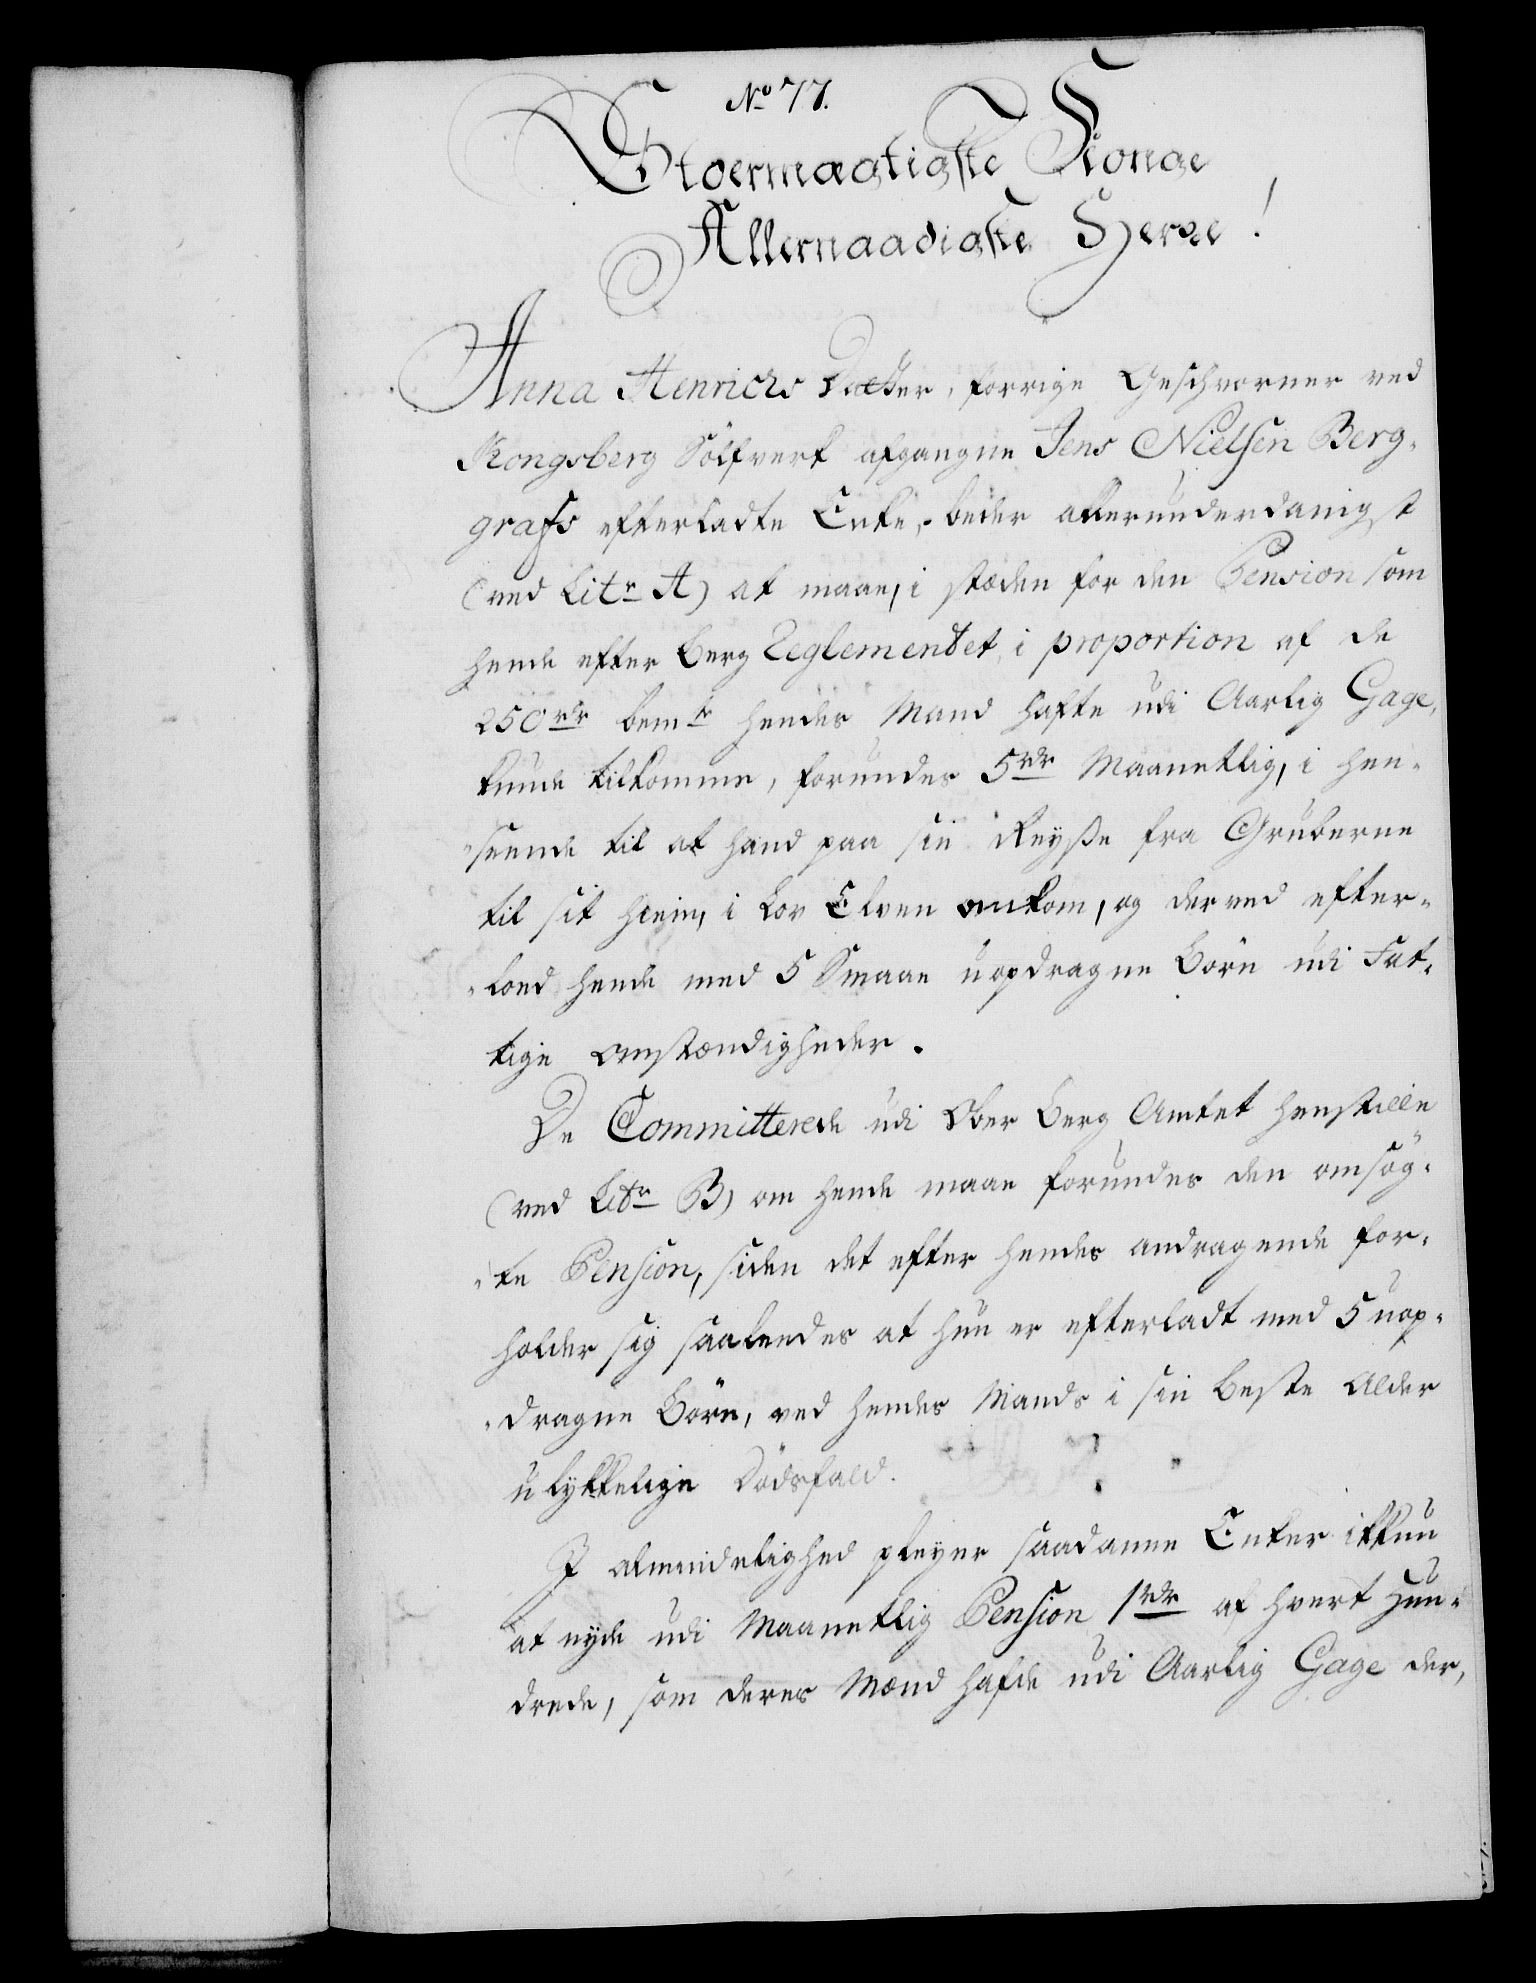 No 77.
Stoermægtigste Konge
Allernaadigste Herre!
Anna Henrichs Datter, forrige Geschworner ved
Kongsberg Sölfverk afgangne Jens Nielsen Berg-
grafs efterladte Enke, beder allerunderdanigst
(ved Litr A) at maae, i stæden for den Pension som
hende efter Berg Reglementet, i proportion af de
250 rdr bemte hendes Mand hafte udi Aarlig Gage,
kunde tilkomme, forundes 5 rdr Maanetlig, i hen-
-seende til at hand paa sin Reyße fra Gruberne
til sit hiem, i Lov Elven omkom, og derved efter-
-lod hende med 5 Smaae uopdragne Börn udi Fat-
tige omstændigheder.
De Committerede udi Ober Berg Amtet henstille
(ved Litr B) om hende maae forundes den omsög-
-te Pension, siden det efter hendes andragende for-
holder sig saaledes at hun er efterladt med 5 uop-
-dragne Börn, ved hendes Mands i sin beste Alder
ulykkelige Dödsfald.
I almindelighed pleyer saadanne Enker ikkun
at nyde udi Maanetlig Pension 1 rdr af hvert Hun-
drede, som deres Mænd hafde udi Aarlig Gage der,